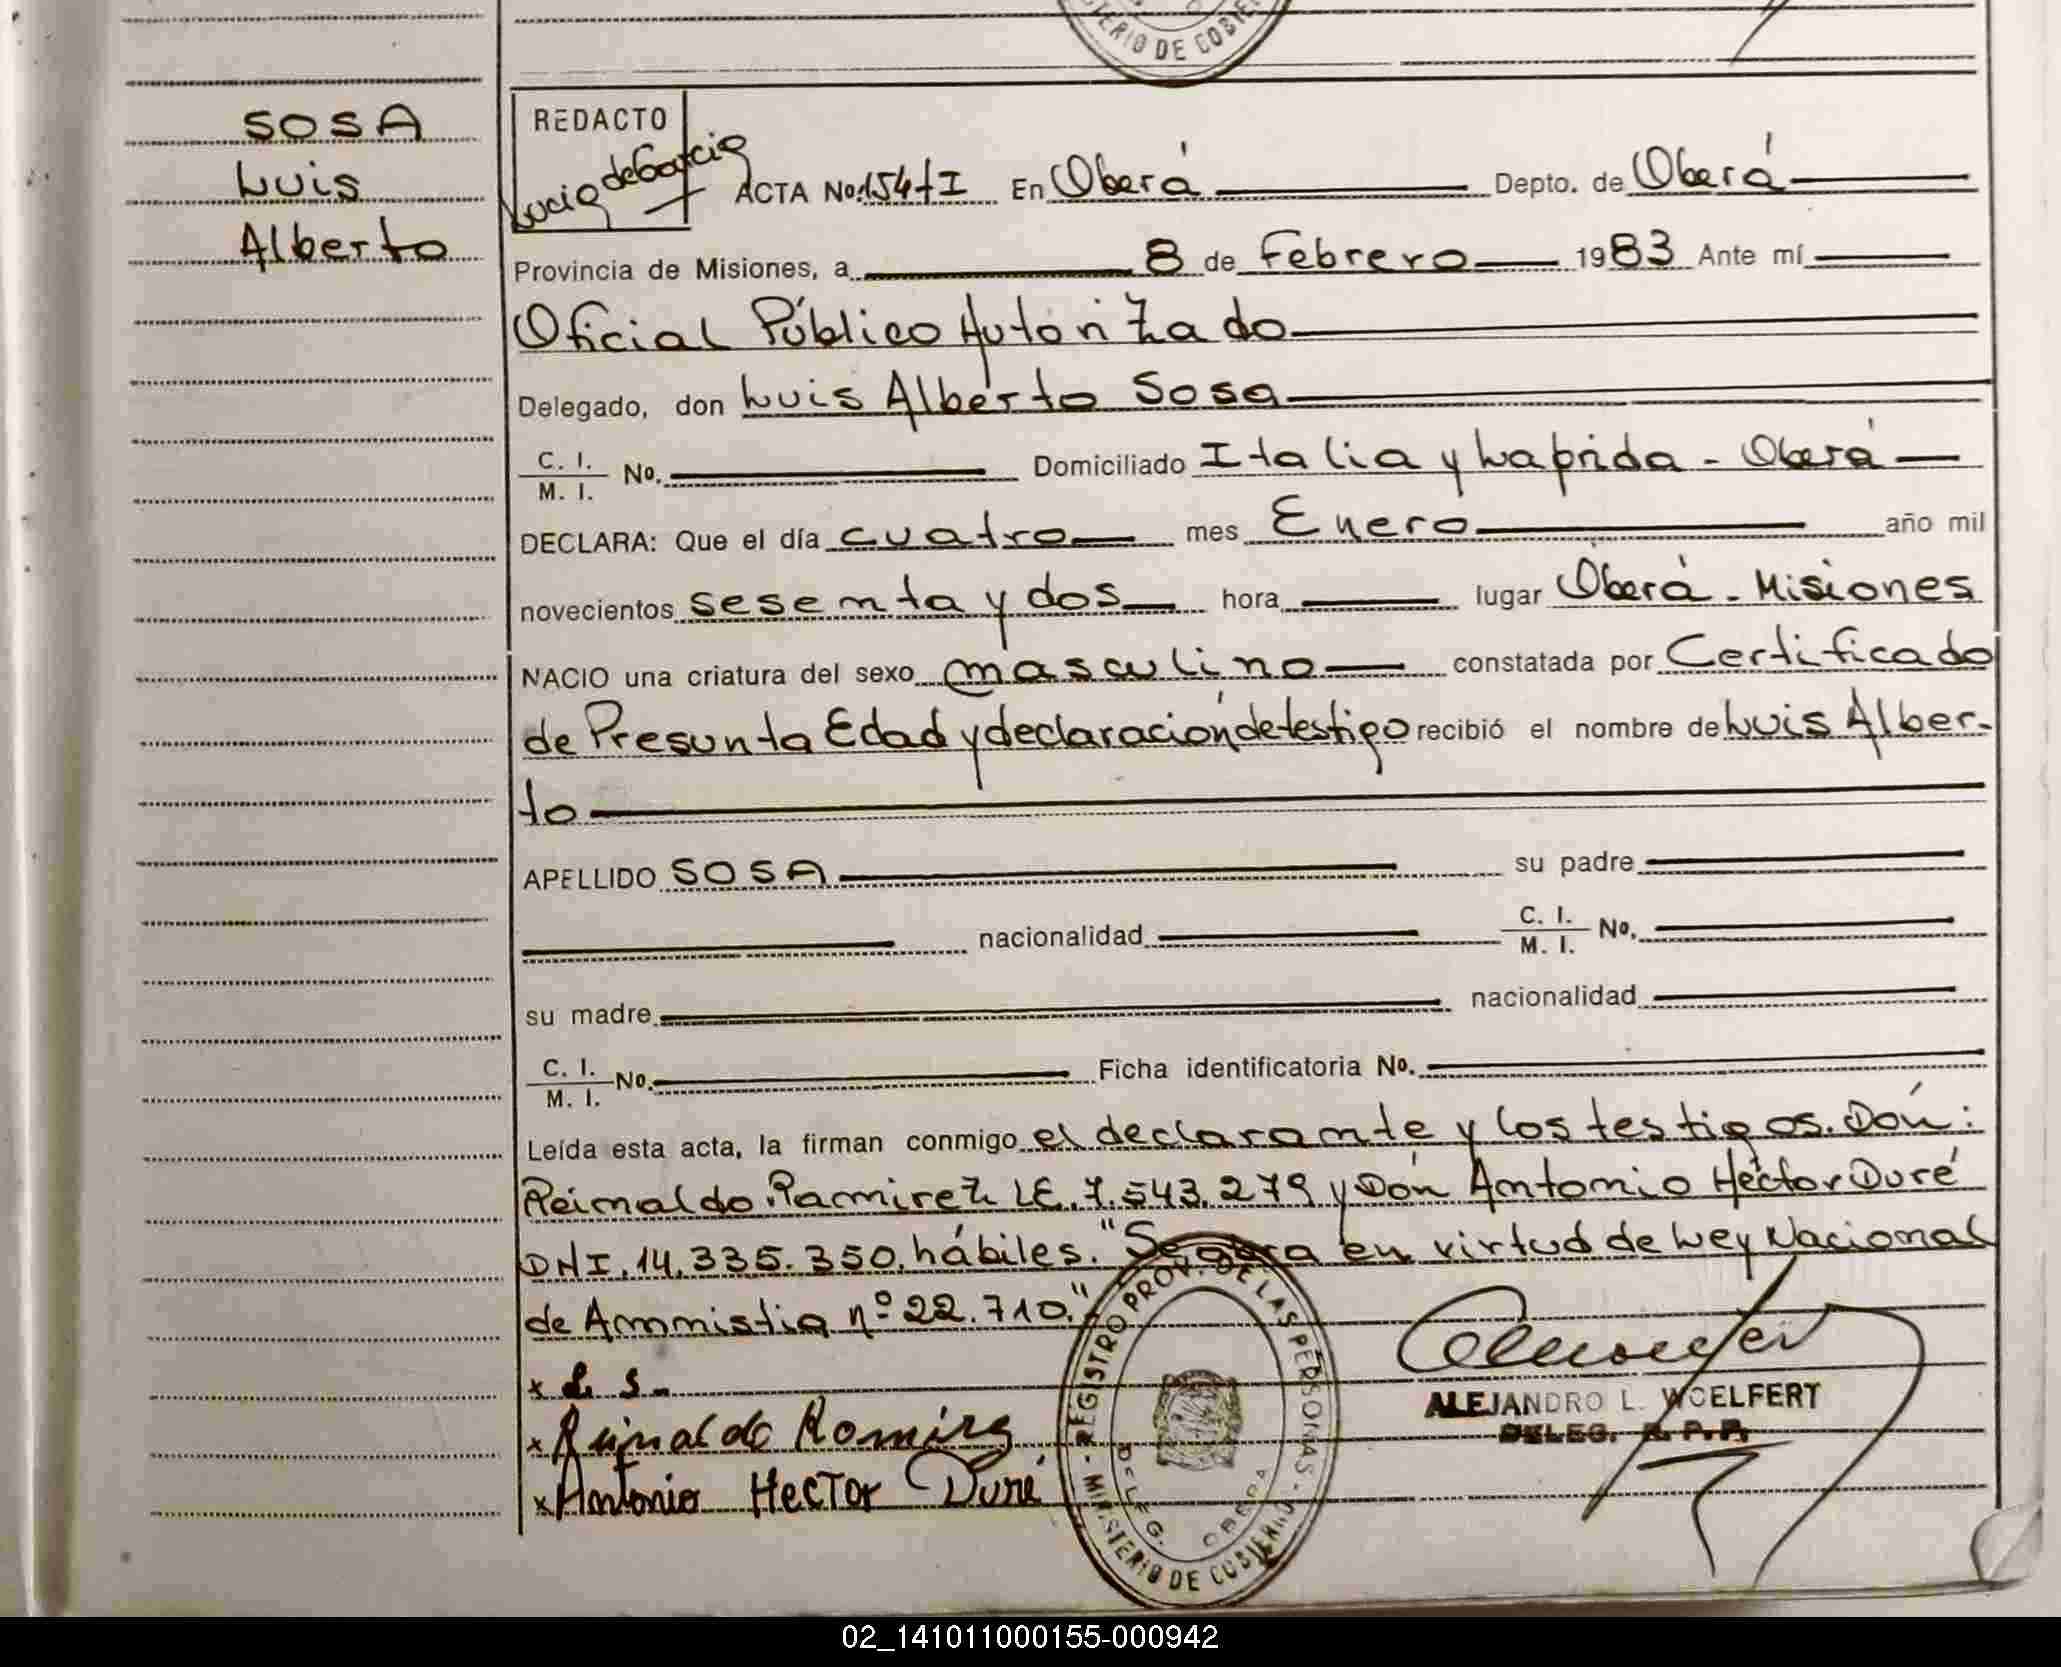 MINISTERIO DE GOBIERNO
SOSA
Luis
Alberto
REDACTO
Lucia deGarcia
ACTA No. 154-I En Oberá Depto. de Oberá
Provincia de Misiones, a 8 de Febrero 1983 Ante mí
Oficial Público Autorizado
Delegado, don Luis Alberto Sosa
C. I.
M. I. No. Domiciliado Italia y Laprida - Oberá
DECLARA: Que el día cuatro mes Enero año mil
novecientos sesenta y dos hora lugar Oberá - Misiones
NACIO una criatura del sexo masculino constatada por Certificado
de Presunta Edad y declaración de testigo recibió el nombre de Luis Alber-
to
APELLIDO SOSA su padre
nacionalidad C. I.
M. I. No.
su madre nacionalidad
C. I.
M. I. No. Ficha identificatoria No.
Leída esta acta, la firman conmigo el declarante y los testigos. Don:
Reinaldo Ramirez LE. 7.543.279 y Don Antonio Héctor Duré
DNI. 14.335.350. hábiles. "Se abra en virtud de Ley Nacional
de Ammistia nº 22.710."
x L. S.
x Reinaldo Ramirez
x Antonio Hector Duré
REGISTRO PROV. DE LAS PERSONAS - MINISTERIO DE GOBIERNO -
DELEG. OBERA
ALEJANDRO L. WOELFERT
DELEG. R. P. P.
02_141011000155-000942